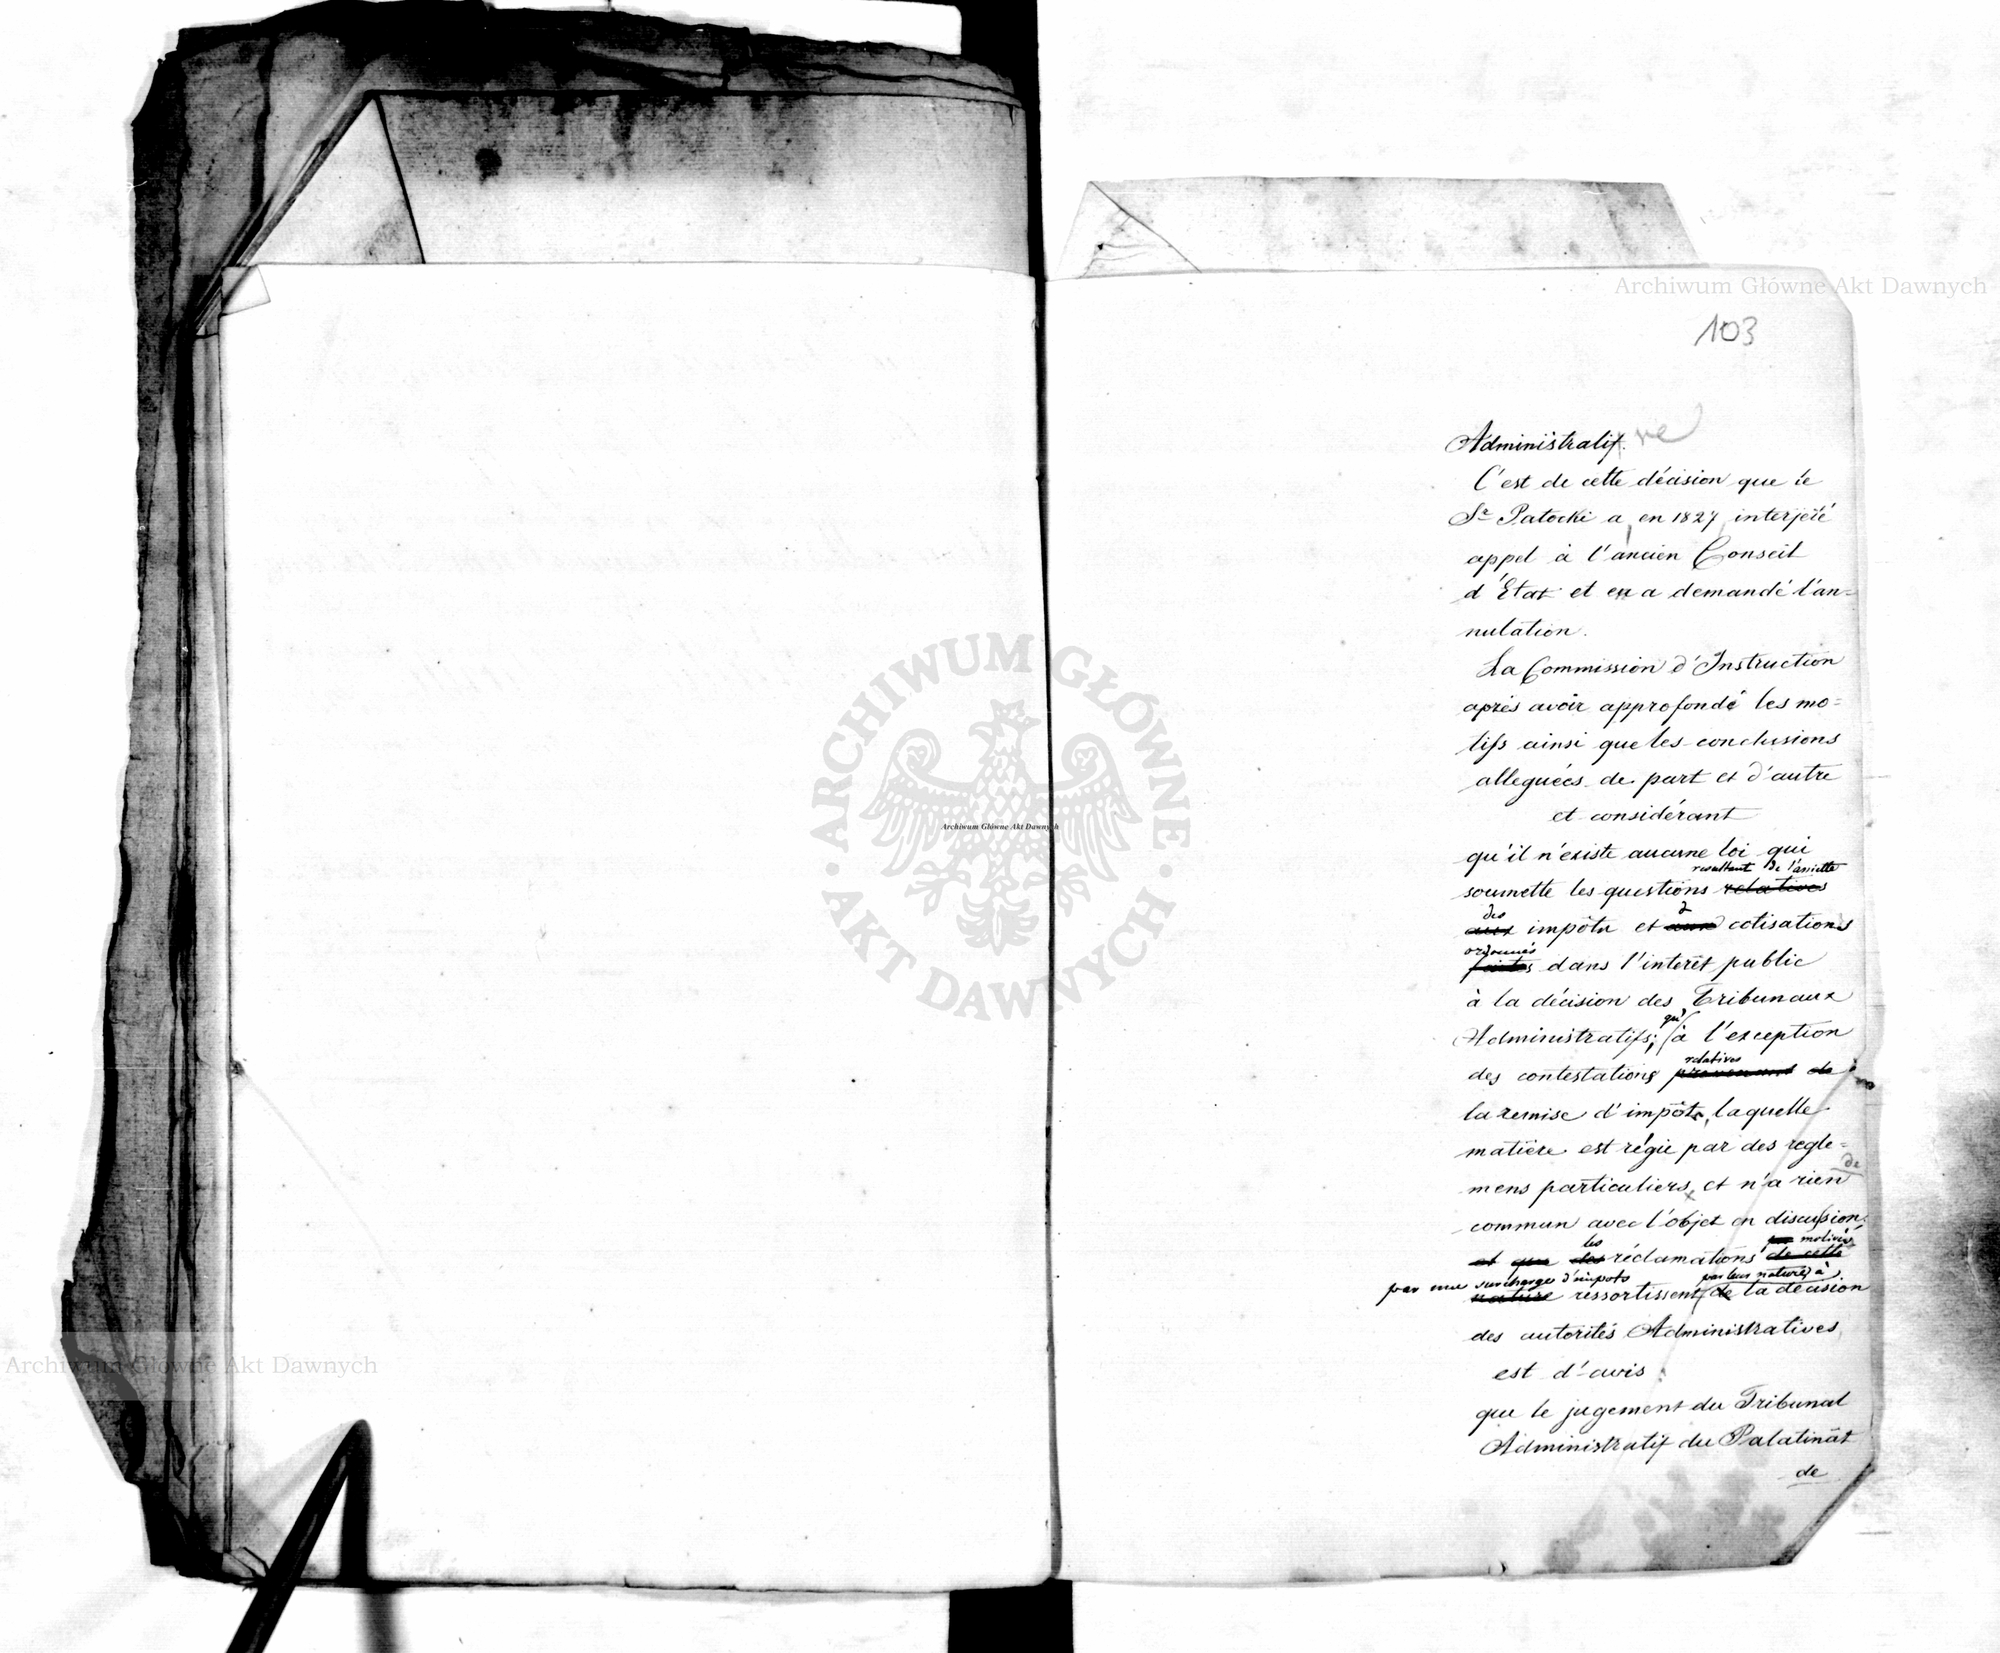 103
Administratif. ve
C'est de cette décision que le
Sr Patocki a en 1827 interjeté
appel à l'ancien Conseil
d'Etat et en a demandé l'an=
nulation.
La Commission d'Instruction
après avoir approfondé les mo=
tifs ainsi que les conclusions
alleguées de part et d'autre
et considérant
qu'il n'existe aucune loi qui
resultant de l'assiette
soumette les questions relatives
des d
aux impôts et aux cotisations
ordonnés
faites dans l'interêt public
à la décision des Tribunaux
qu'
Administratifs; à l'exception
relatives
des contestations provenant de
la remise d'impôts, laquelle
matière est régie par des regle=
de
mens particuliers, et n'a rien
commun avec l'objet en discussion,
les par motivés
et que des réclamations de cette
par une surcharge d'impots par leur nature à
nature ressortissent de la décision
des autorités Administratives
est d'avis :
que le jugement du Tribunal
Administratif du Palatinat
de
Archiwum Główne Akt Dawnych
ARCHIWUM GŁÓWNE · AKT DAWNYCH ·
Archiwum Główne Akt Dawnych
Archiwum Główne Akt Dawnych